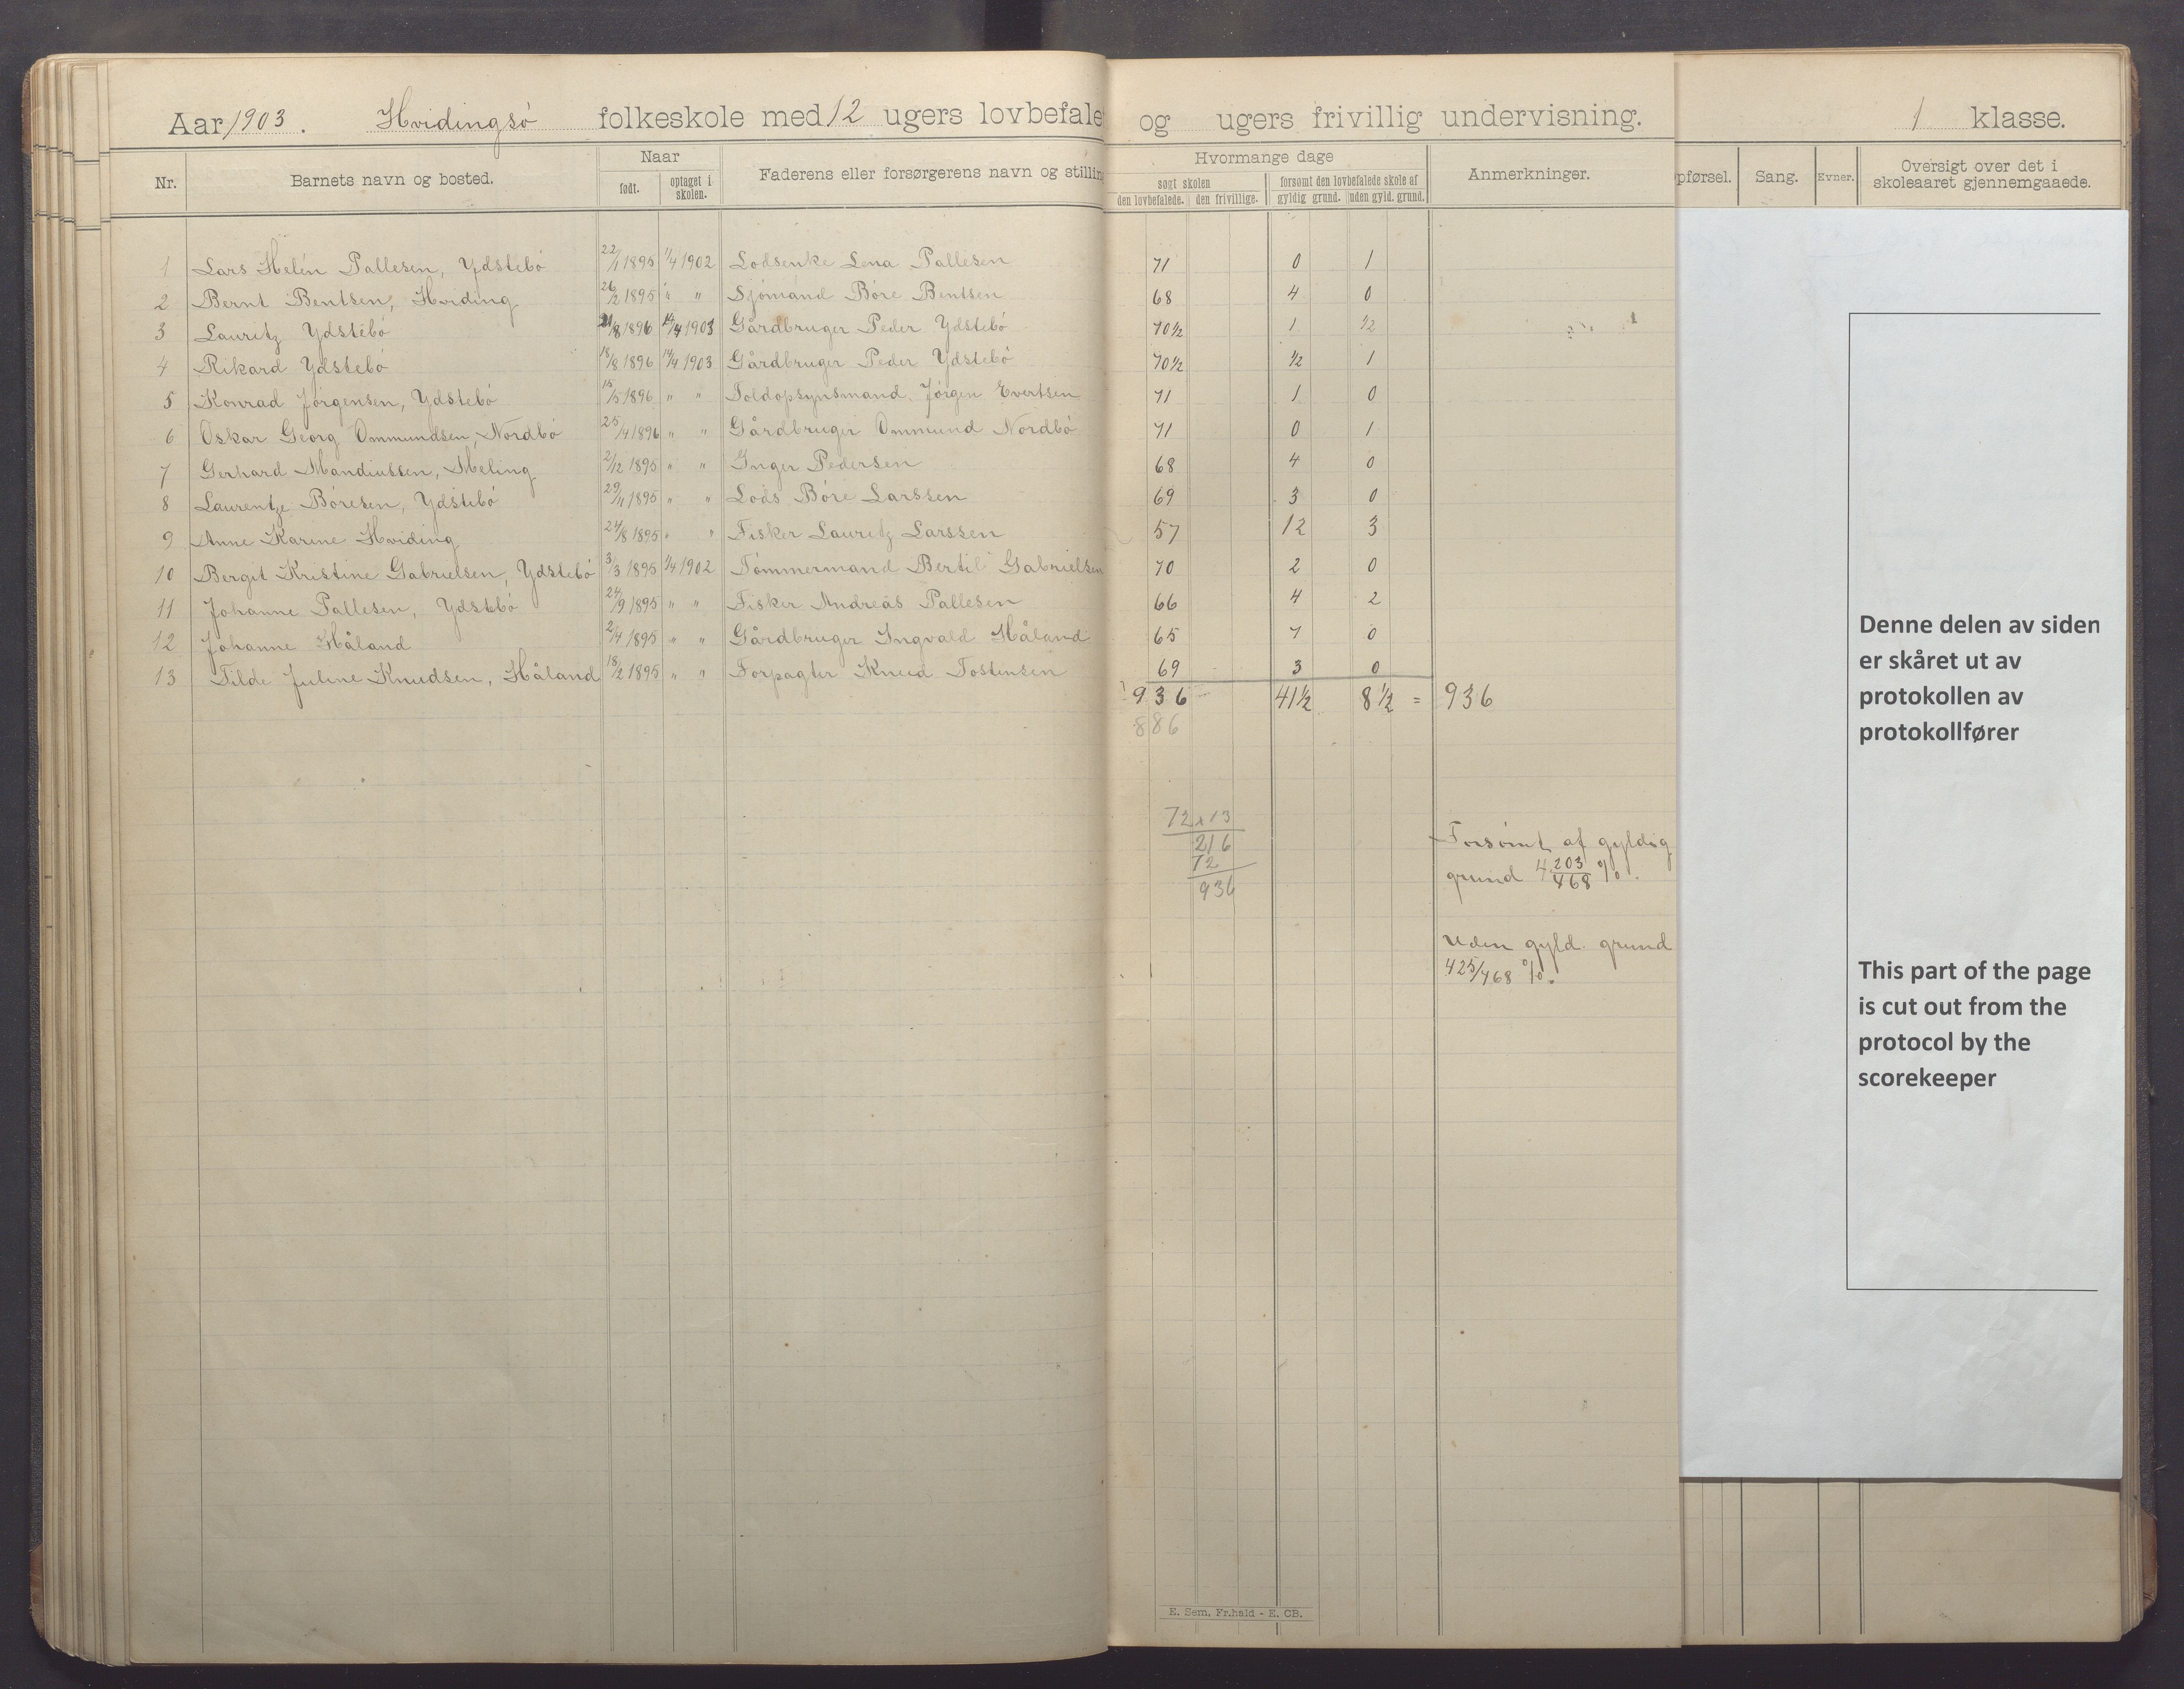 Aar 1903. Hvidingsö folkeskole med 12 ugers lovbefale og ugers frivillig undervisning. 1 klasse.
Nr. Barnets navn og bosted. Naar født. optaget i skolen. Faderens eller forsørgerens navn og stilling Hvormange dage søgt skolen den lovbefalede. den frivillige. forsømt den lovbefalede skole af gyldig grund. uden gyld. grund. Anmerkninger. pførsel. Sang. Evner. Oversigt over det i skoleaaret gjennemgaaede.
1 Lars Helén Pallesen, Ydstebö 22/1 1895 1/4 1902 Lodsenke Lena Pallesen 71 0 1
2 Bernt Bentsen, Hviding 26/2 1895 " " Sjömand Böre Bentsen 68 4 0
3 Lauritz Ydstebö 21/8 1896 14/4 1903 Gårdbruger Peder Ydstebö 70½ 1 ½
4 Rikard Ydstebö 18/8 1896 14/4 1903 Gårdbruger Peder Ydstebö 70½ ½ 1
5 Konrad Jörgensen, Ydstebö 15/5 1896 " " Toldopsynsmand Jörgen Evertsen 71 1 0
6 Oskar Georg Ommundsen, Nordbö 25/4 1896 " " Gårdbruger Ommund Nordbö 71 0 1
7 Gerhard Mandiussen, Meling 2/12 1895 " " Inger Pedersen 68 4 0
8 Laurentze Böresen, Ydstebö 29/11 1895 " " Lods Böre Larssen 69 3 0
9 Anne Karine Hviding 24/8 1895 " " Fisker Lauritz Larssen 57 12 3
10 Bergit Kristine Gabrielsen, Ydstebö 3/3 1895 1/4 1902 Tömmermand Bertil Gabrielsen 70 2 0
11 Johanne Pallesen, Ydstebö 24/9 1895 " " Fisker Andreas Pallesen 66 4 2
12 Johanne Håland 2/4 1895 " " Gårdbruger Ingvald Håland 65 7 0
13 Tilde Juline Knudsen, Håland 18/2 1895 " " Forpagter Knud Tostensen 69 3 0
936 41½ 8½ = 936
886
72 x 13
216
72
936
Forsömt af gyldig
grund 4 203/468 %.
Uden gyld. grund
425/468 %.
E. Sem, Fr.hald - E. CB.
Denne delen av siden
er skåret ut av
protokollen av
protokollfører
This part of the page
is cut out from the
protocol by the
scorekeeper